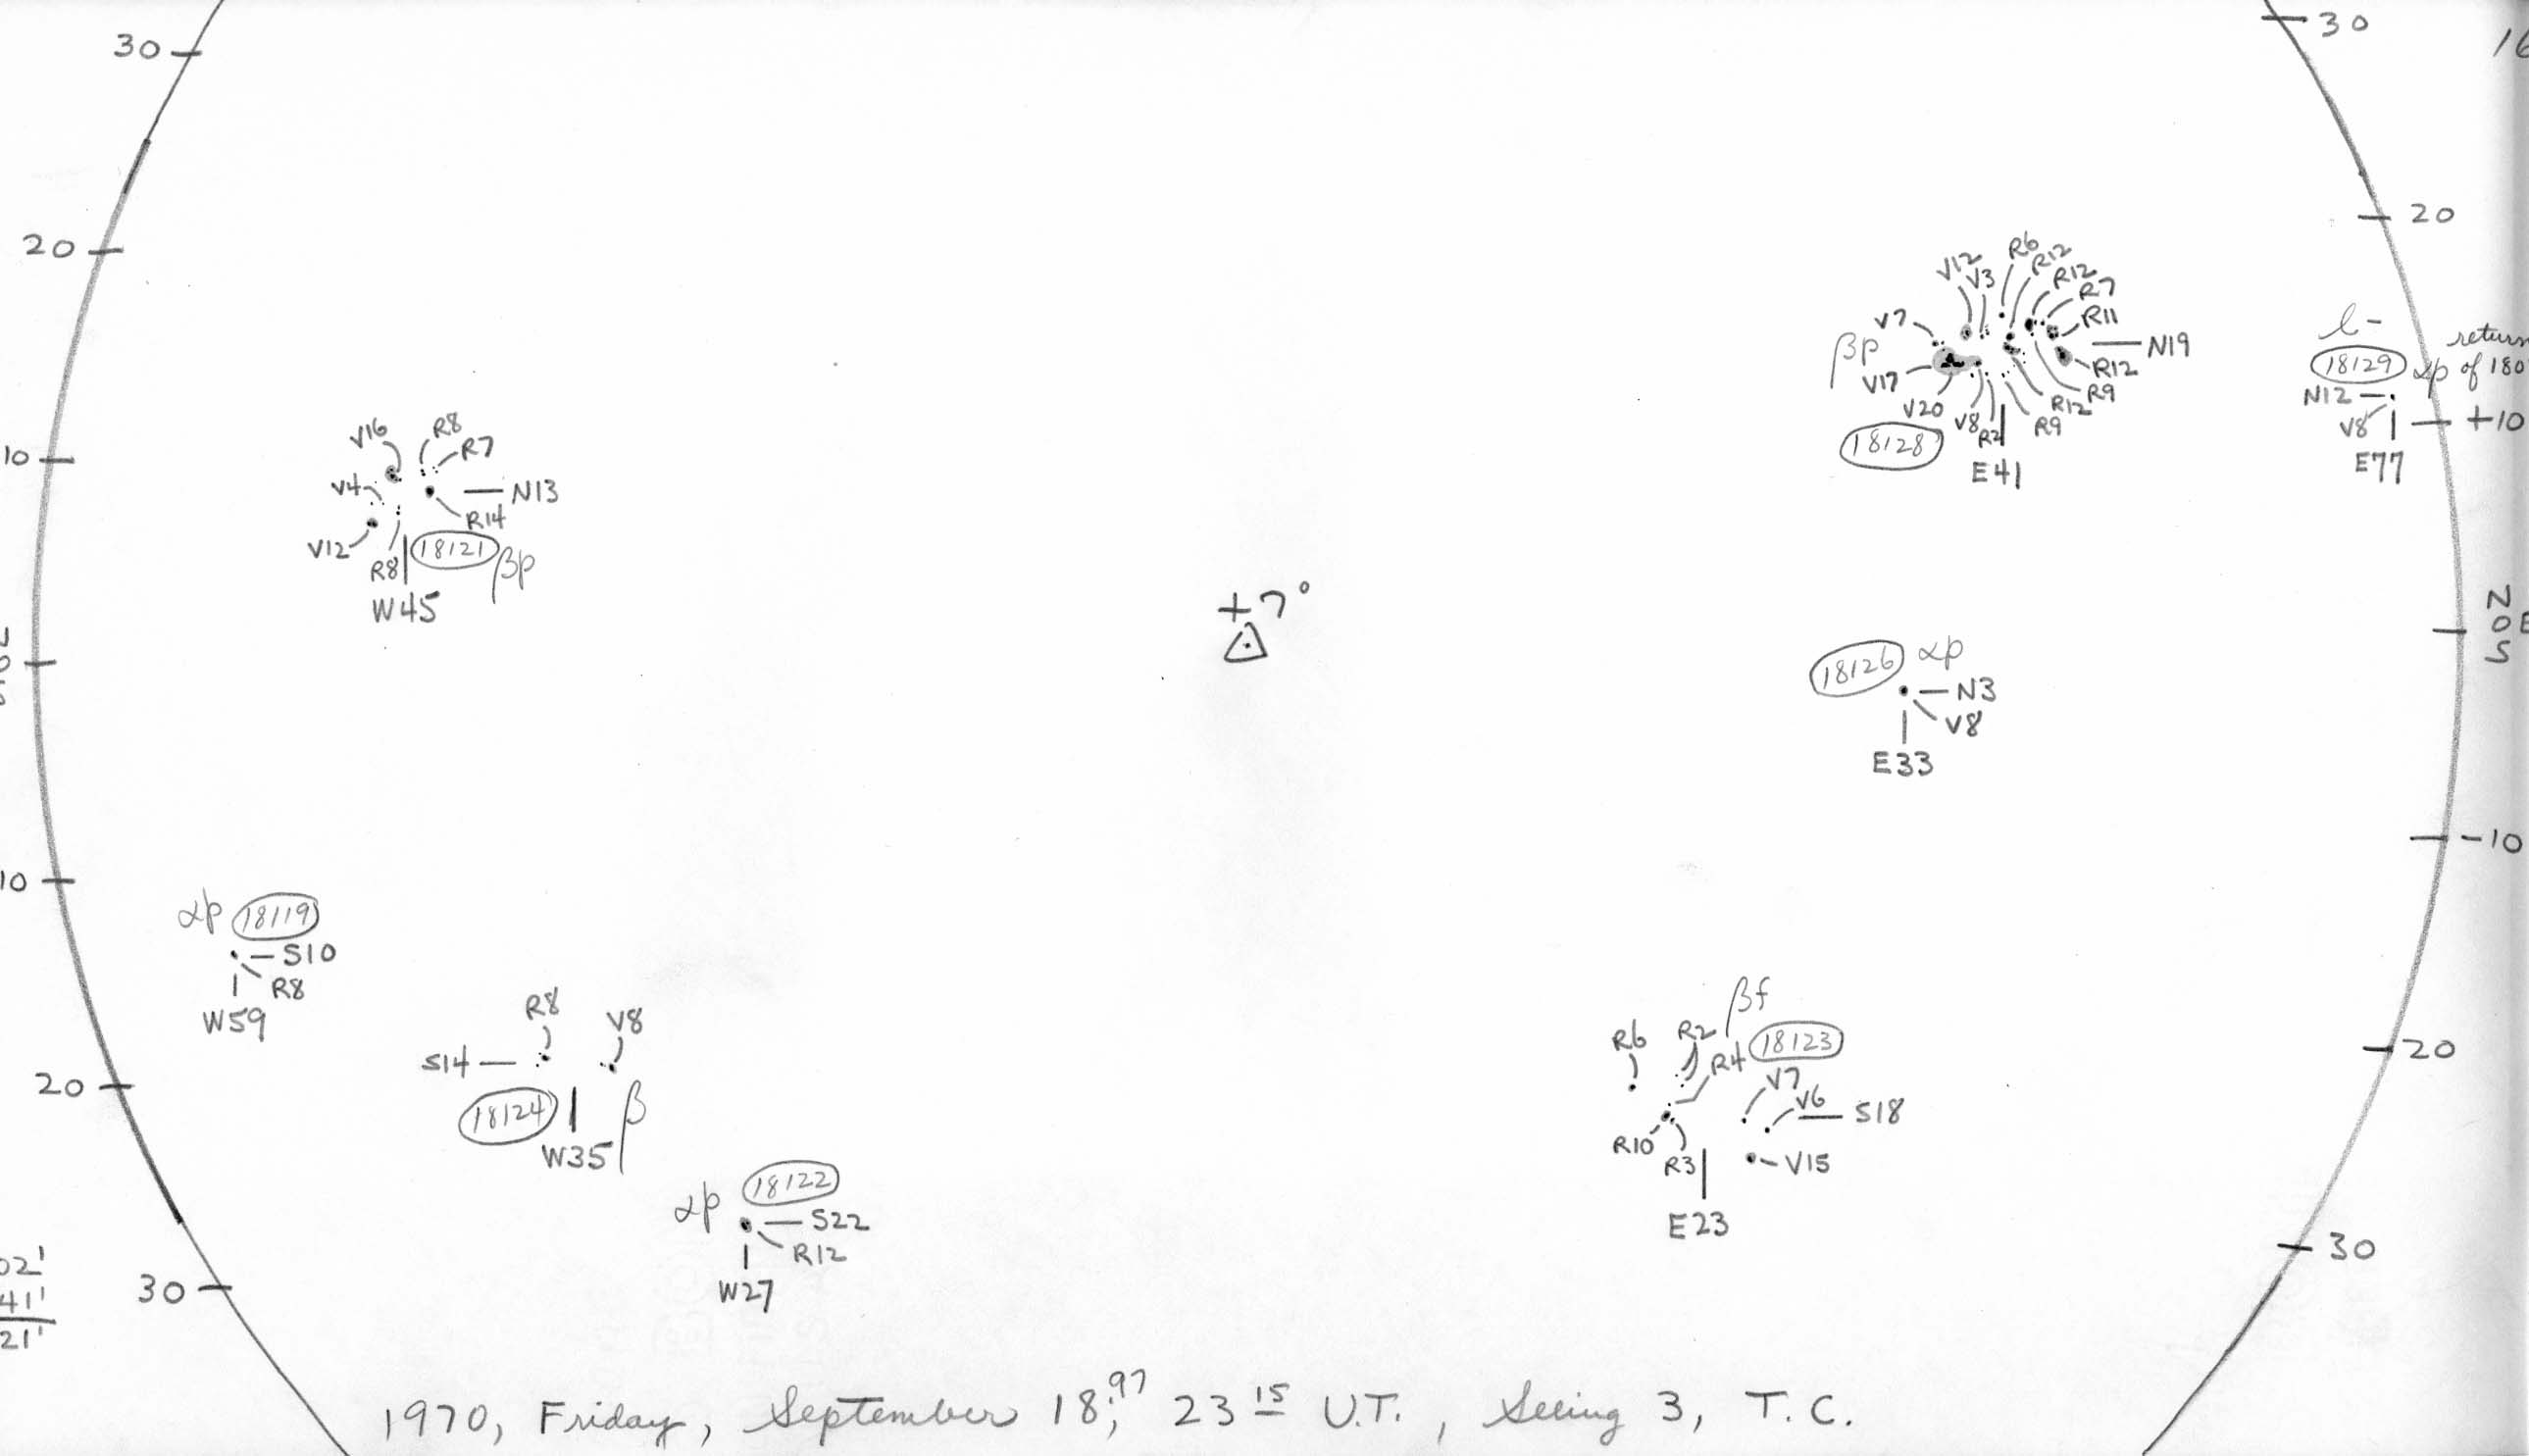 30
30
16
20
20
10
+10
N
0 E
S
0
-10
10
20
20
30
30
+7°
V16
R8
R7
V4
N13
R14
V12
R8
18121 βp
W45
V12
V3
R6
R12
R12
R7
R11
V7
N19
βp
V17
R12
R9
R12
V20
V8
R2
R9
18128
E41
l-
return
18129 αp of 180
N12
V8
E77
18126 αp
N3
V8
E33
αp 18119
S10
R8
W59
R8
V8
S14
18124
β
W35
αp 18122
S22
R12
W27
βf
R6
R2
18123
R4
V7
V6
S18
R10
R3
V15
E23
02'
41'
21'
1970, Friday, September 18,97 23 15 U.T., Seeing 3, T.C.